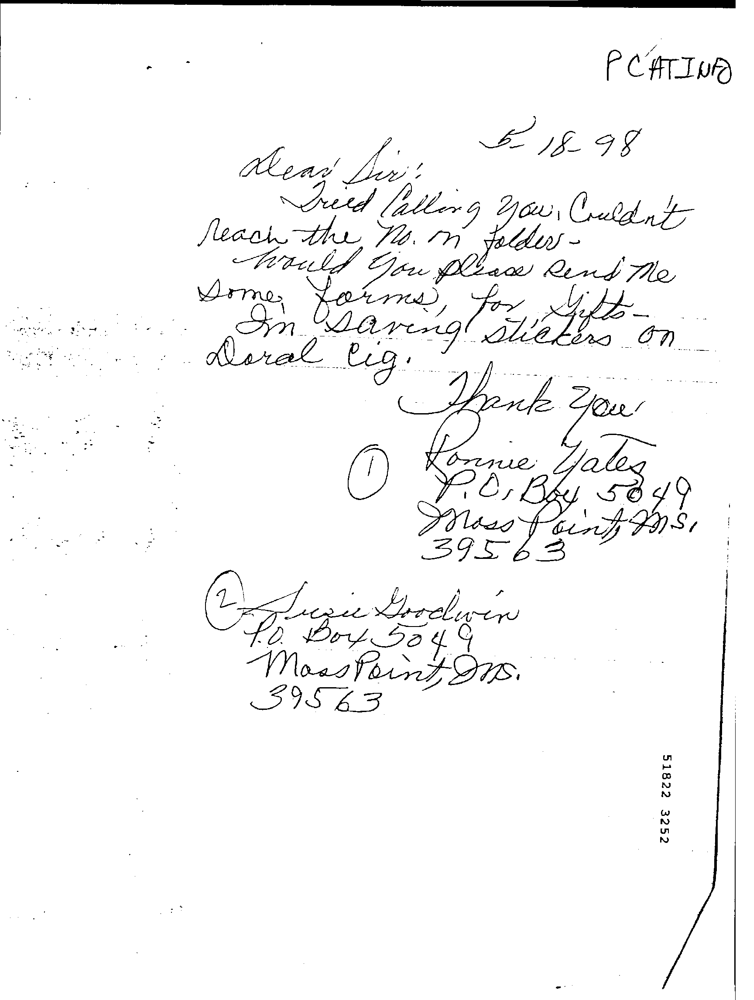 PCATINFO
5-18-98
Dear Sir:
Tried Calling You, Couldn't
reach the No. on folder-
Would You please send Me
some forms, for Gifts-
I'm saving stickers on
Doral Cig.
Thank You
① Ronnie Yates
P.O. Box 5049
Moss Point, Ms.
39563
② Susie Goodwin
P.O. Box 5049
Moss Point, Ms.
39563
51822 3252